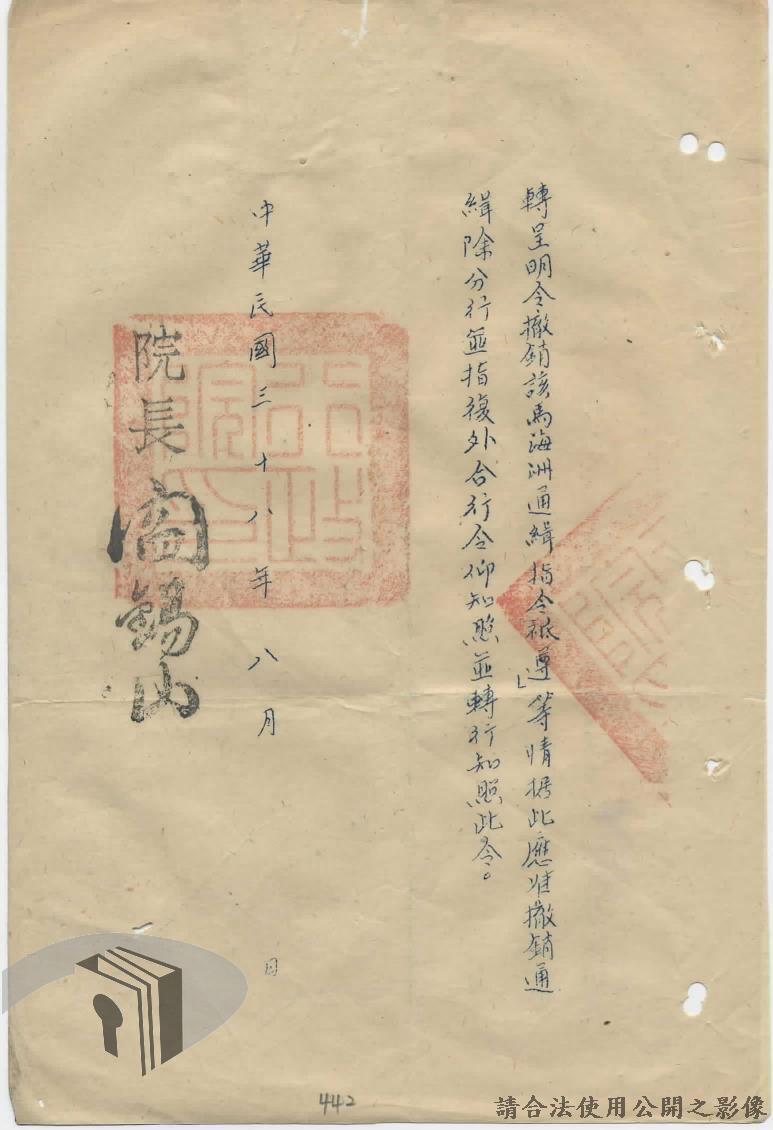 轉呈明令撤銷該馬海洲通緝指令祗遵」等情据此應准撤銷通
緝除分行並指復外合行令仰知照並轉行知照此令。
中華民國三十八年八月
日
院長閻錫山
行政院印
442
請合法使用公開之影像